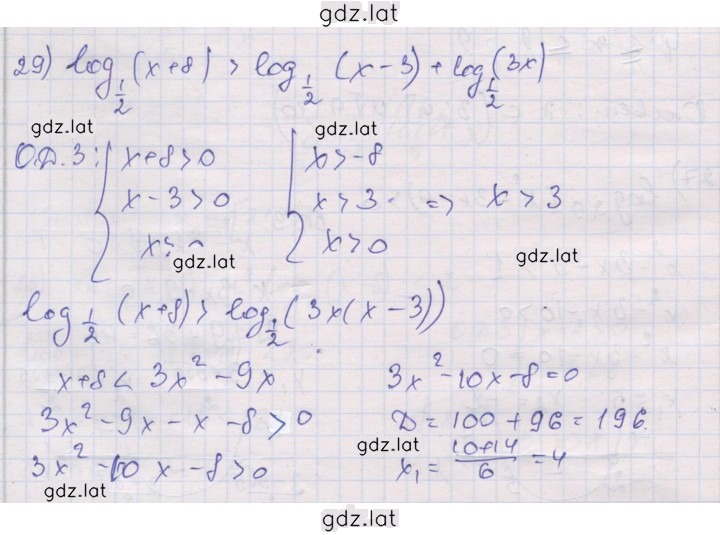 gdz.lat
29) log_{1/2} (x+8) > log_{1/2} (x-3) + log_{1/2} (3x)
gdz.lat gdz.lat
О.Д.З: { x+8>0 { x>-8
x-3>0 x>3 => x>3
x> x>0
gdz.lat gdz.lat
log_{1/2} (x+8) > log_{1/2} (3x(x-3))
x+8 < 3x² - 9x 3x² - 10x - 8 = 0
3x² - 9x - x - 8 > 0 D = 100 + 96 = 196.
3x² - 10x - 8 > 0 x₁ = (10+14)/6 = 4
gdz.lat gdz.lat
gdz.lat